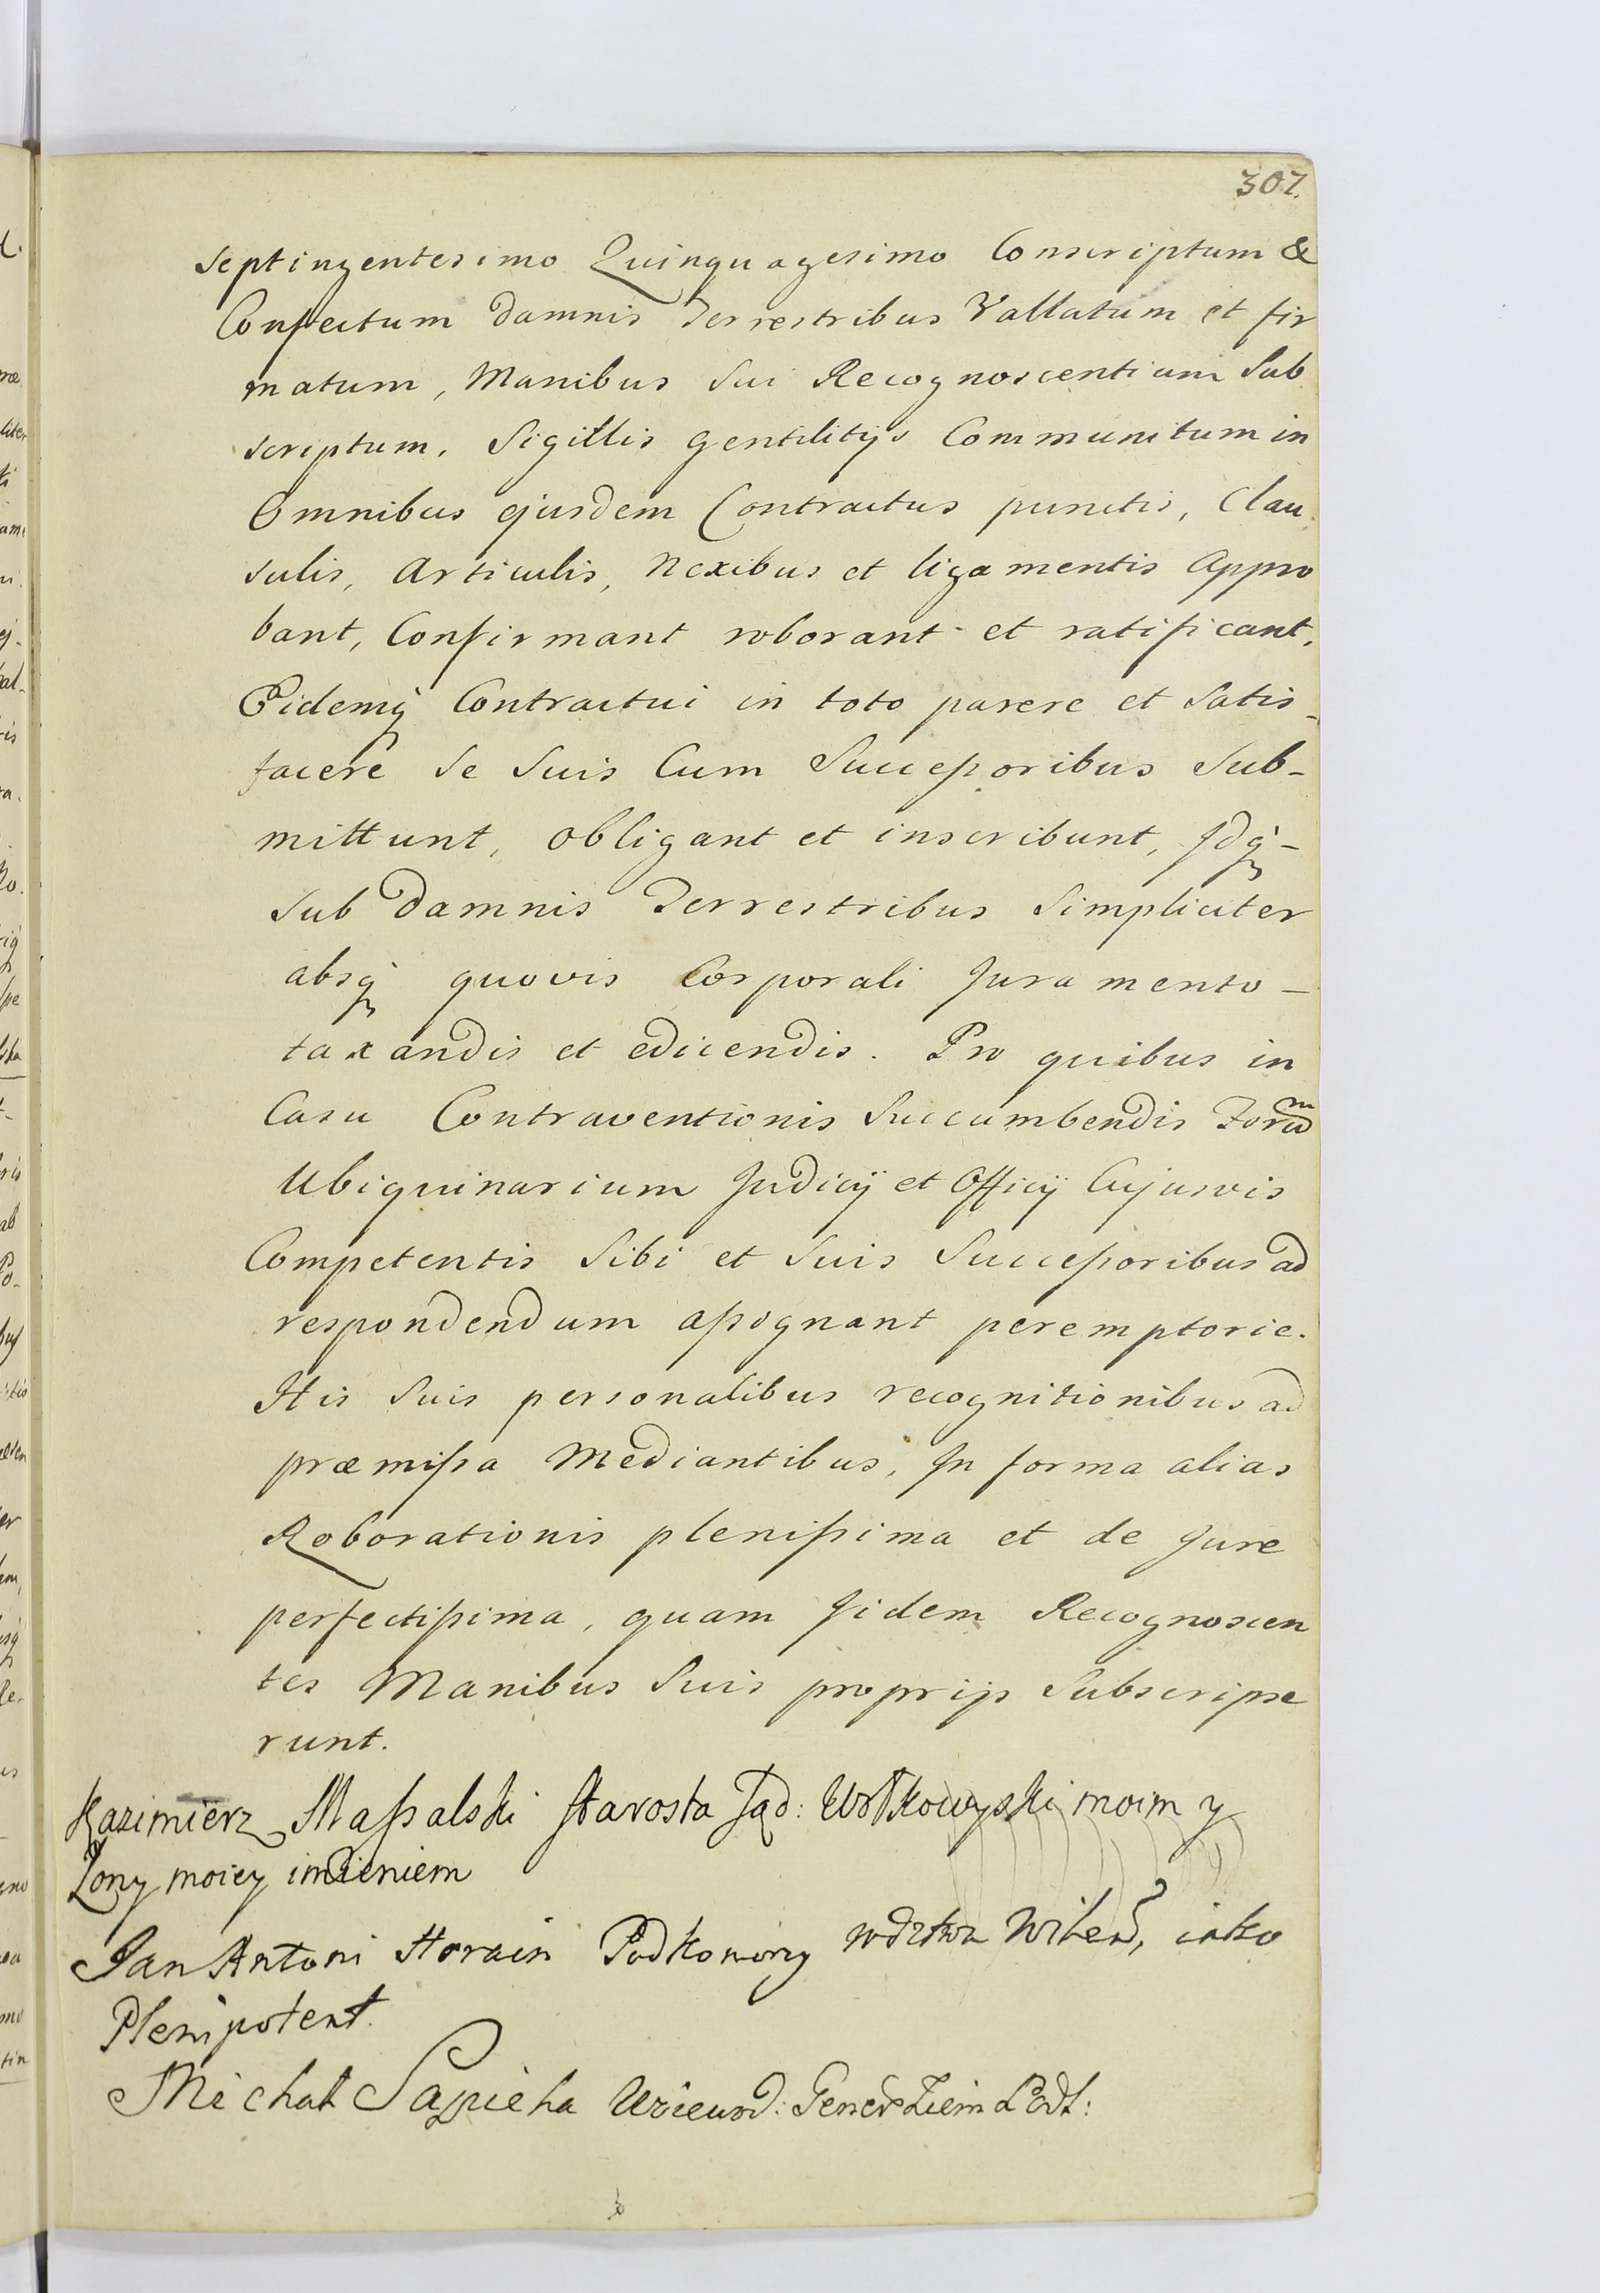 307.
septingentesimo Quinquagesimo Conscriptum &
Confectum damnis Terrestribus Vallatum et fir
matum, Manibus sui Recognoscentium Sub
scriptum, Sigillis gentilitijs Communitum in
Omnibus ejusdem Contractus punctis, Clau
sulis, Articulis, Nexibus et ligamentis Appro
bant, Confirmant roborant et ratificant,
Eidemq Contractui in toto parere et Satis-
facere se suis Cum Successoribus Sub-
mittunt, obligant et inscribunt, Idq-
sub damnis Terrestribus Simpliciter
absq quovis Corporali Juramento-
taxandis et edicendis. Pro quibus in
Casu Contraventionis Succumbendis Forum
Ubiquinarium Judicÿ et Officÿ Cujusvis
Competentis Sibi et Suis Successoribus ad
respondendum assignant peremptorie.
His Suis personalibus recognitionibus ad
præmissa Mediantibus, In forma alias
Roborationis plenissima et de Jure
perfectissima, quam Iidem Recognoscen
tes Manibus Suis proprijs Subscripse
runt.
Kazimierz Massalski Starosta Sąd: Wołkowyski moim y
Żony moiey imieniem
Jan Antoni Horain Podkomorzy wdztwa Wilen, iako
Plenipotent.
Michał Sapieha General Ziem Podl: